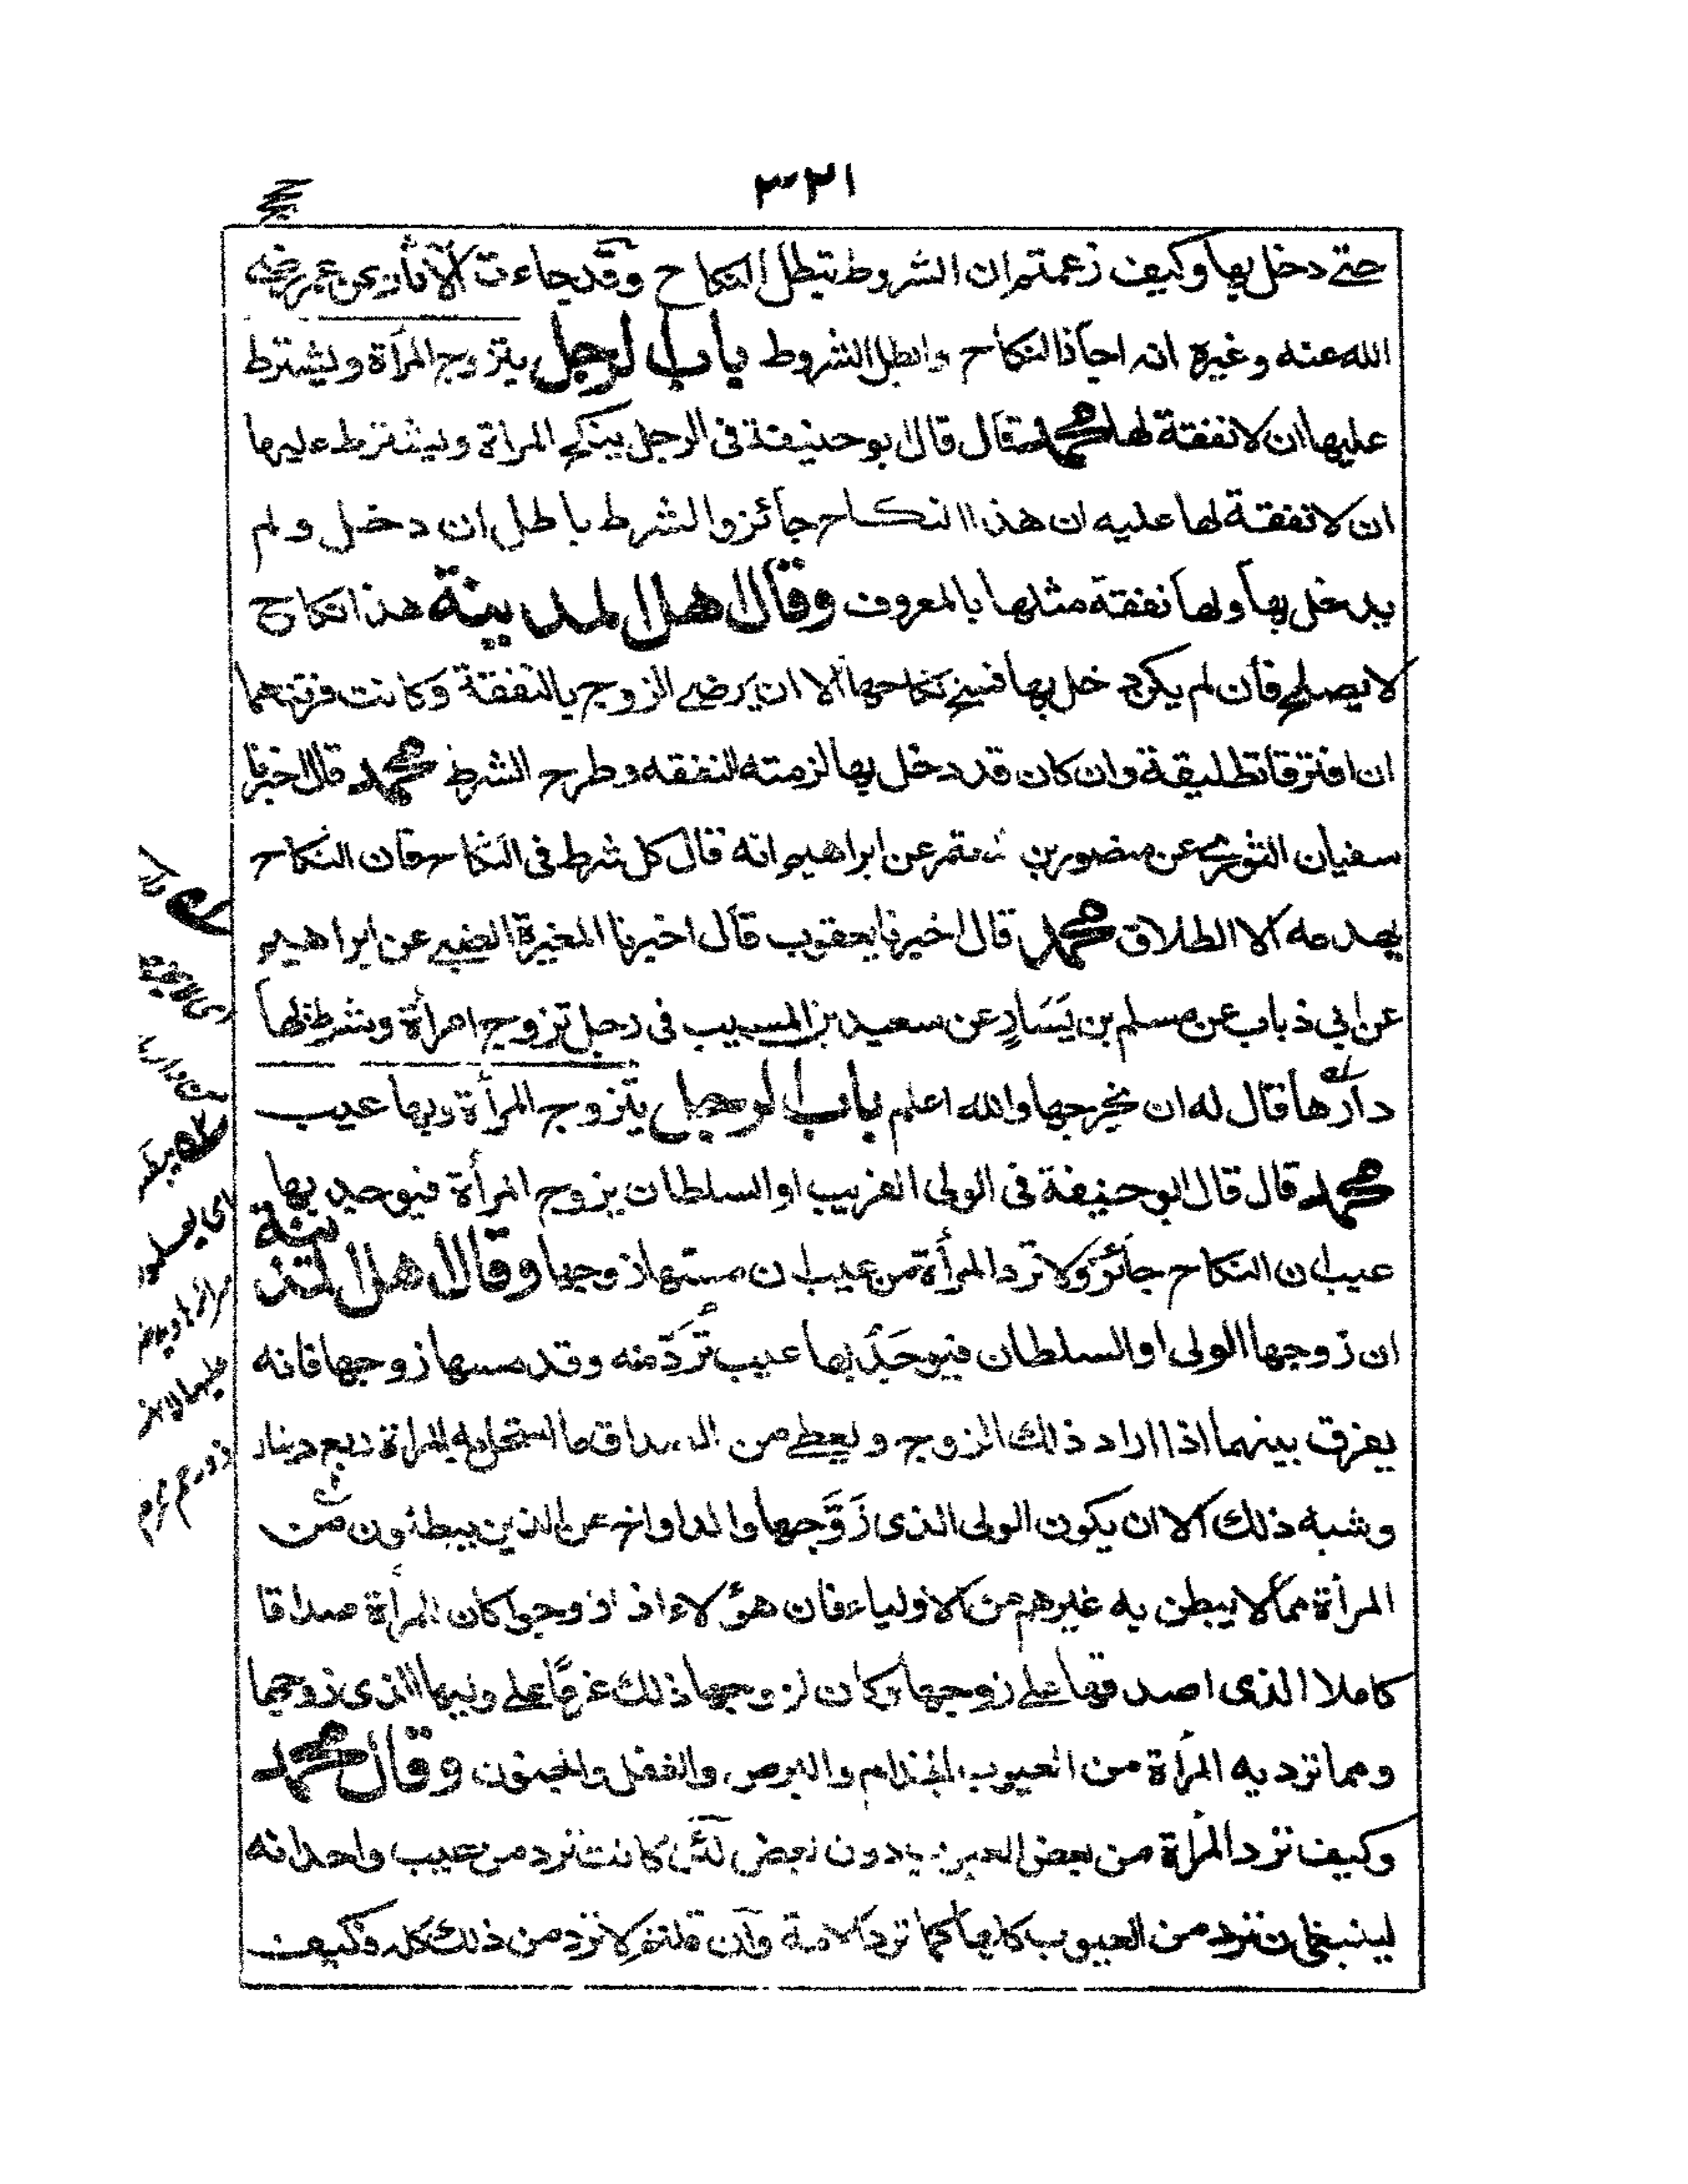 ٣٢١
حتے دخل بها وكيف زعمتم ان الشروط تبطل النكاح وقد جاءت الآثار عن عمر رضى
الله عنه وغيره انه اجاز النكاح وابطل الشروط باب الرجل يتزوج المرأة ويشترط
عليها ان لا نفقة لها محمد قال قال ابو حنيفة فى الرجل ينكح المرأة ويشترط عليها
ان لا نفقة لها عليه ان هذا النكاح جائز والشرط باطل ان دخل ولم
يدخل بها ولها نفقة مثلها بالمعروف وقال اهل المدينة هذا نكاح
لا يصلح فان لم يكن دخل بها فسخ نكاحها الا ان يرضى الزوج بالنفقة وكانت فرقتهما
ان افترقا تطليقة وان كان قد دخل بها لزمته النفقه وطرح الشرط محمد قال اخبرنا
سفيان الثورے عن منصور بن عن ابراهيم انه قال كل شرط فى النكاح فان النكاح
يهدمه الا الطلاق محمد قال اخبرنا يعقوب قال اخبرنا المغيرة الضبے عن ابراهيم
عن ابي ذباب عن مسلم بن يَسَارٍ عن سعيد بن المسيب فى رجل تزوج امرأة وشرط لها
دارها قال له ان يخرجها والله اعلم باب الرجل يتزوج المرأة وبها عيب
محمد قال قال ابو حنيفة فى الولى القريب او السلطان يزوج المرأة فيوجد بها
عيب ان النكاح جائز ولا ترد المرأة من عيب ان مستها زوجها وقال اهل المدينة
ان زوجها الولى او السلطان فيوجَدُ بها عيب تُرَدّ منه وقد مسها زوجها فانه
يفرق بينهما اذا اراد ذلك الزوج ويعطے من الصداق ما استحل به المرأة ربع دينار
وشبه ذلك الا ان يكون الولى الذى زَوَّجها والدا واخ عن الذين يبطنون من
المرأة مما لا يبطن به غيرهم من الاولياء فان هؤلاء اذا زوجوا كان المرأة صداقا
كاملا الذى اصدقها على زوجها وكان لزوجها ذلك غرمًا على وليها الذى زوجها
ومما ترد به المرأة من العيوب الجذام والبرص والعفل والجنون وقال محمد
وكيف ترد المرأة من بعض العيوب دون بعض لئن كانت ترد من عيب واحد انه
لينبغى ان ترد من العيوب كلها كما ترد الامة وان قلتم لا ترد من ذلك كله وكيف